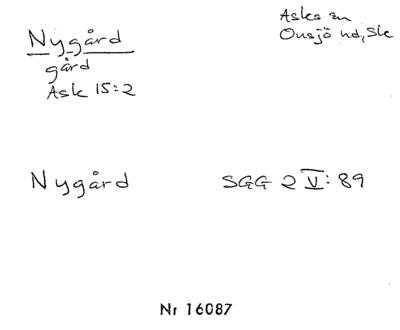 Nygård
gård
Ask 15:2
Asks sn
Onsjö hd, Sk
Nygård
SGG 2 V: 89
Nr 16087